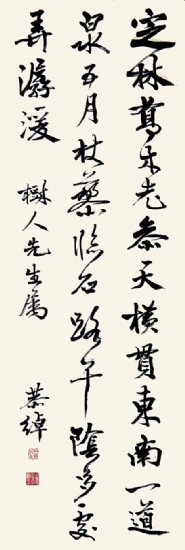 定林喬木老參天橫貫東南一道
泉五月杖藜臨石路午陰多處
弄潺湲
樹人先生屬
恭綽